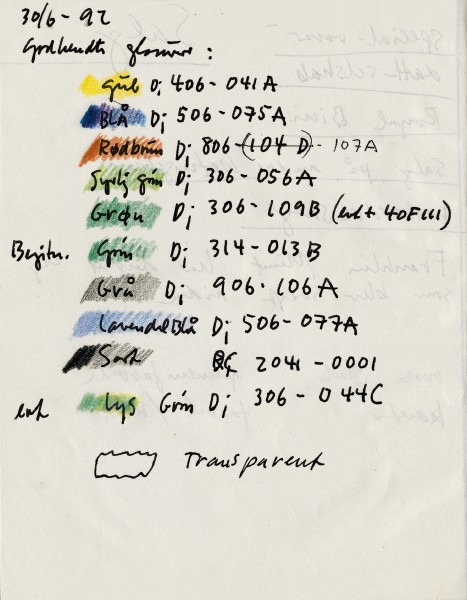 30/6-92
Godkendte glasurer :
gul D; 406-041A
BLÅ D; 506-075A
Rødbrun D; 806-(104 D)- 107A
Syrlig grøn D; 306-056A
Grøn D; 306-109B (ent + 40F111)
Grøn D; 314-013B
Grå D; 906-106A
LavendelBlå D; 506-077A
Sort 2041-0001
ent Lys Grøn D; 306-044C
Transparent